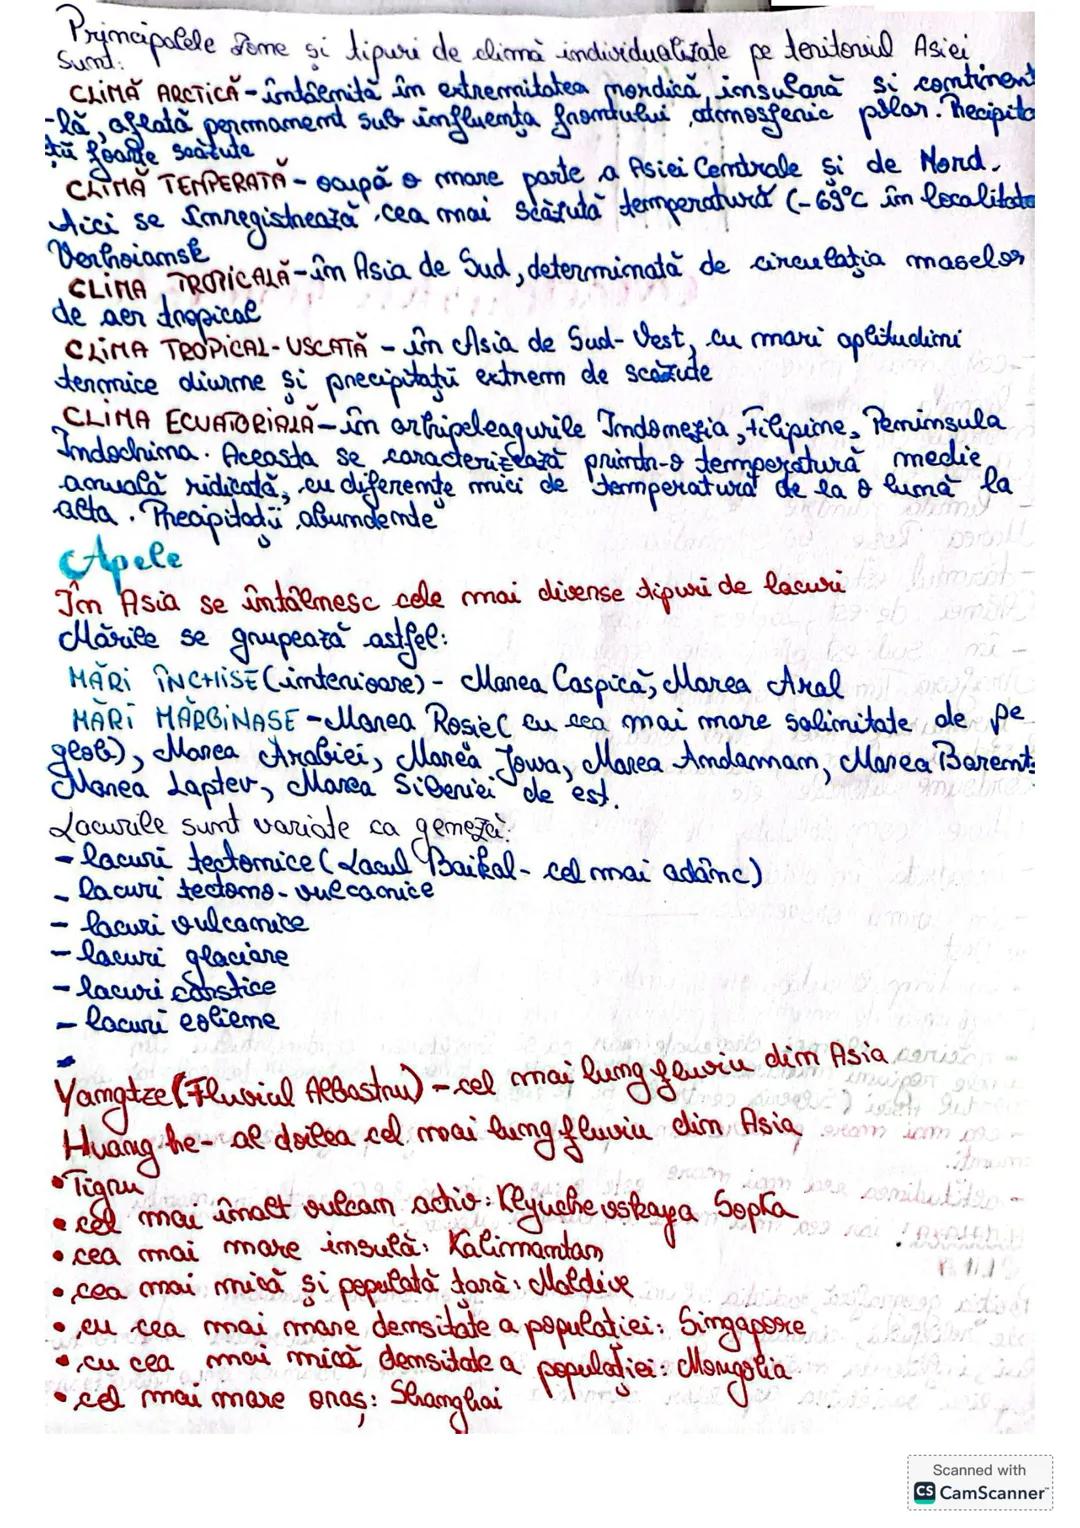 Principalele zome și tipuri de climă individualizate pe teritoriul Asiei
Sunt:
CLIMĂ ARCTICĂ - întâlnită în extremitatea nordică, insulară și continent
-lă, aflată permanent sub influența frontului atmosferic polar. Precipita
ții foarte scăzute
CLIMĂ TEMPERATĂ - ocupă o mare parte a Asiei Centrale și de Nord.
Aici se înregistrează cea mai scăzută temperatură (-69°C în localitate
Verhoiansk
CLIMA TROPICALĂ - în Asia de Sud, determinată de circulația maselor
de aer tropical
CLIMA TROPICAL-USCATĂ - în Asia de Sud-Vest, cu mari aplitudini
termice diurne și precipitații extrem de scăzute
CLIMA ECUATORIALĂ - în arhipeleagurile Indonezia, Filipine, Peninsula
Indochina. Aceasta se caracterizează printr-o temperatură medie
anuală ridicată, cu diferențe mici de temperatură de la o lună la
alta. Precipitații abundente
Apele
În Asia se întâlnesc cele mai diverse tipuri de lacuri
Mările se grupează astfel:
MĂRI ÎNCHISE (interioare) - Marea Caspică, Marea Aral
MĂRI MĂRGINAȘE - Marea Roșie (cu cea mai mare salinitate de pe
glob), Marea Arabiei, Marea Jowa, Marea Andamam, Marea Barents
Marea Laptev, Marea Siberiei de est.
Lacurile sunt variate ca geneză:
- lacuri tectonice (Lacul Baikal - cel mai adânc)
- lacuri tectono-vulcanice
- lacuri vulcanice
- lacuri glaciare
- lacuri carstice
- lacuri eoliene
Yamgtze (Fluviul Albastru) - cel mai lung fluviu din Asia
Huang he - al doilea cel mai lung fluviu din Asia
• Tigru
• cel mai înalt vulcan activ: Klyuchevskaya Sopka
• cea mai mare insulă: Kalimantan
• cea mai mică și populată țară: Maldive
• cu cea mai mare densitate a populației: Singapore
• cu cea mai mică densitate a populației: Mongolia
• cel mai mare oraș: Shanghai
Scanned with
CS CamScanner